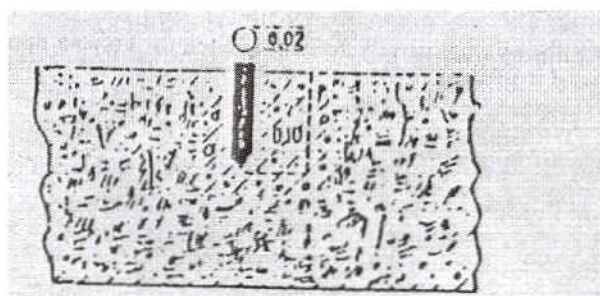 0.02
0.10